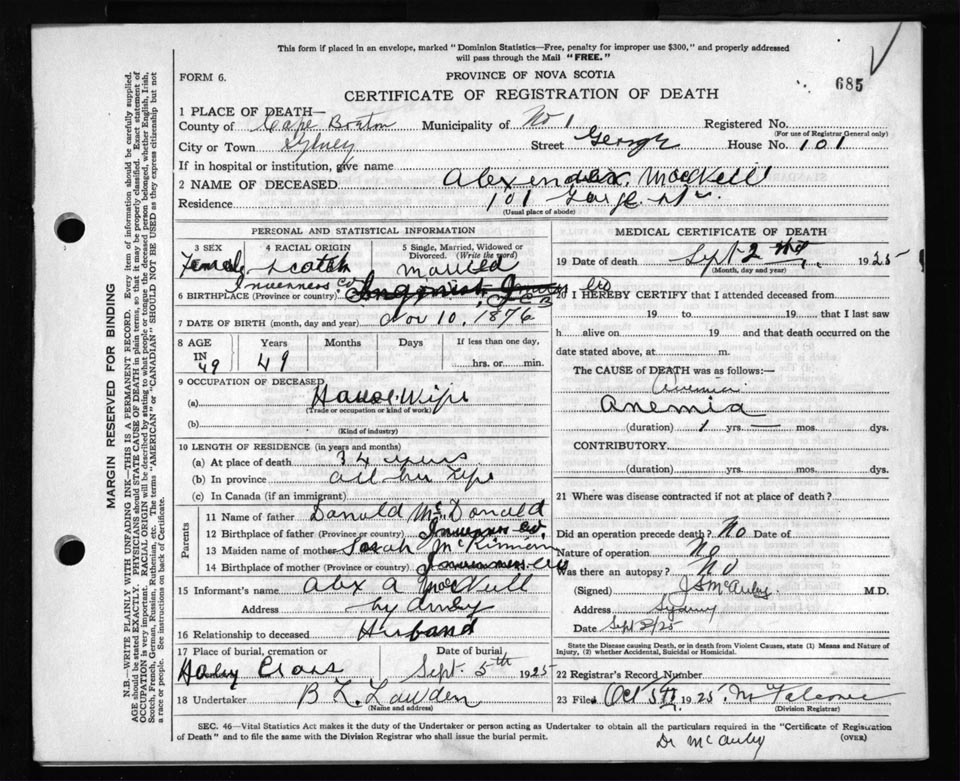 This form if placed in an envelope, marked "Dominion Statistics—Free, penalty for improper use $300," and properly addressed
will pass through the Mail "FREE."
FORM 6.
PROVINCE OF NOVA SCOTIA
685
CERTIFICATE OF REGISTRATION OF DEATH
1 PLACE OF DEATH—
County of Cape Breton Municipality of No 1 Registered No.
(For use of Registrar General only)
City or Town Sydney Street George House No. 101
If in hospital or institution, give name
2 NAME OF DECEASED Alexender MacNeil
Residence 101 George St.
(Usual place of abode)
PERSONAL AND STATISTICAL INFORMATION
3 SEX 4 RACIAL ORIGIN 5 Single, Married, Widowed or Divorced. (Write the word)
Female Scotch Married
Inverness Co
6 BIRTHPLACE (Province or country)
7 DATE OF BIRTH (month, day and year) Nov 10, 1876
8 AGE Years Months Days If less than one day,
IN 49 49 hrs. or min.
9 OCCUPATION OF DECEASED
(a) House Wife
(Trade or occupation or kind of work)
(b)
(Kind of industry)
10 LENGTH OF RESIDENCE (in years and months)
(a) At place of death 34 years
(b) In province all her life
(c) In Canada (if an immigrant)
Parents
11 Name of father Danold McDonald
12 Birthplace of father (Province or country) Inverness Co.
13 Maiden name of mother Sarah McKinnon
14 Birthplace of mother (Province or country) Inverness Co
15 Informant's name Alex A MacNeill
Address Sydney
16 Relationship to deceased Husband
17 Place of burial, cremation or Date of burial
Holey Cross Sept. 5th 1925
18 Undertaker B L Lawden
(Name and address)
MEDICAL CERTIFICATE OF DEATH
19 Date of death Sept 2nd 1925
(Month, day and year)
20 I HEREBY CERTIFY that I attended deceased from
19 to 19 that I last saw
h alive on 19 and that death occurred on the
date stated above, at m.
The CAUSE of DEATH was as follows:—
Anemia
Anemia
(duration) 1 yrs. — mos. dys.
CONTRIBUTORY.
(duration) yrs. mos. dys.
21 Where was disease contracted if not at place of death?
Did an operation precede death? No Date of
Nature of operation No
Was there an autopsy? No
(Signed) M.D.
Address Sydney
Date Sept 2/25
State the Disease causing Death, or in death from Violent Causes, state (1) Means and Nature of
Injury, (2) whether Accidental, Suicidal or Homicidal.
22 Registrar's Record Number
23 Filed Oct 5th 1925
(Division Registrar)
SEC. 46—Vital Statistics Act makes it the duty of the Undertaker or person acting as Undertaker to obtain all the particulars required in the "Certificate of Registration
of Death" and to file the same with the Division Registrar who shall issue the burial permit.
(OVER)
Dr McAuley
MARGIN RESERVED FOR BINDING
N.B.—WRITE PLAINLY WITH UNFADING INK—THIS IS A PERMANENT RECORD. Every item of information should be carefully supplied.
AGE should be stated EXACTLY. PHYSICIANS should STATE CAUSE OF DEATH in plain terms, so that it may be properly classified. Exact statement of
OCCUPATION is very important. RACIAL ORIGIN will be described by stating to what people or tongue the deceased person belonged, whether English, Irish,
Scotch, French, German, Russian, Ruthenian, etc. The terms "AMERICAN" or "CANADIAN" SHOULD NOT BE USED as they express citizenship but not
a race or people. See instructions on back of Certificate.